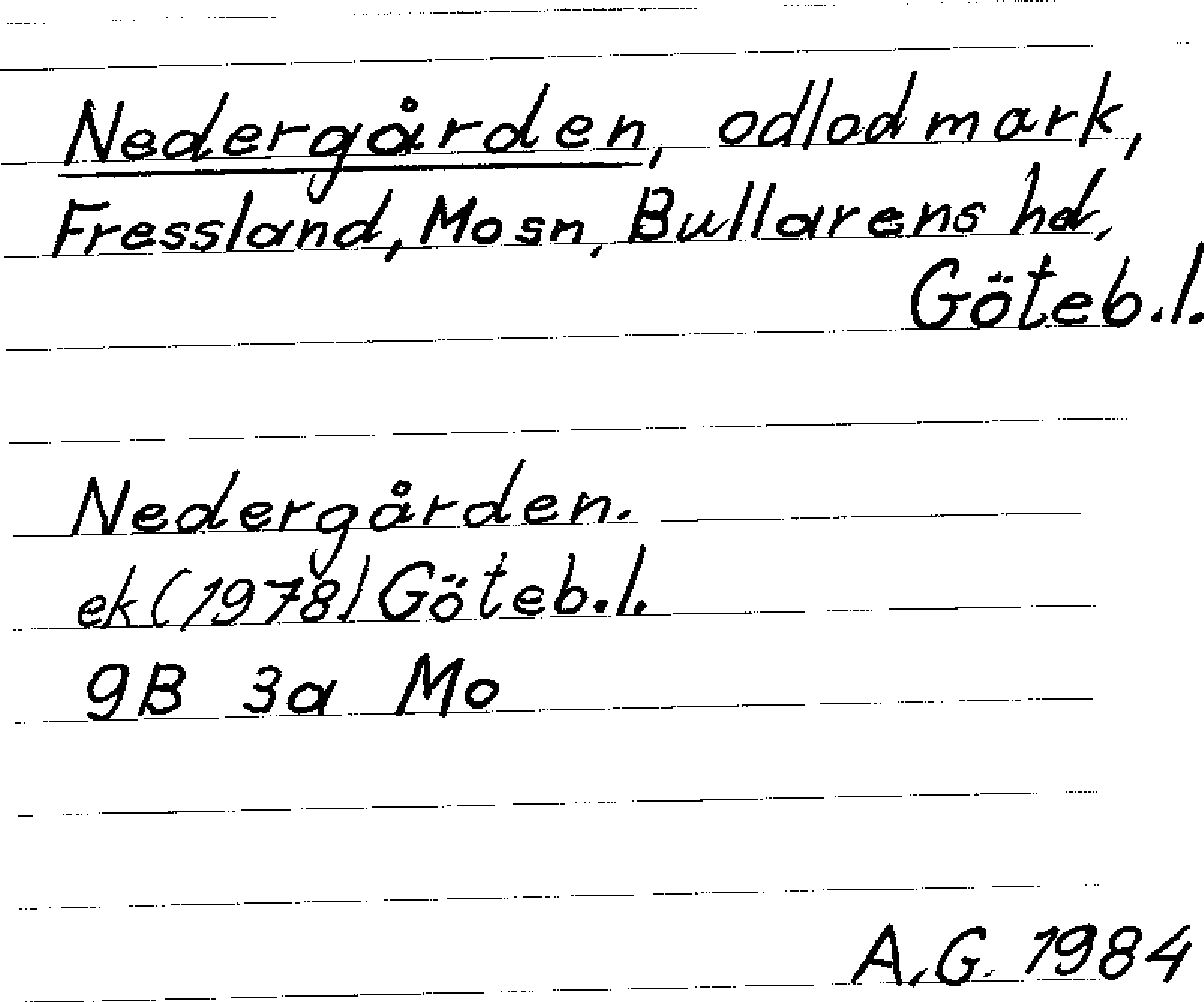 Nedergården, odlad mark,
Fressland, Mo sn, Bullarens hd,
Göteb.l.
Nedergården.
ek (1978) Göteb.l.
9B 3a Mo
A.G. 1984